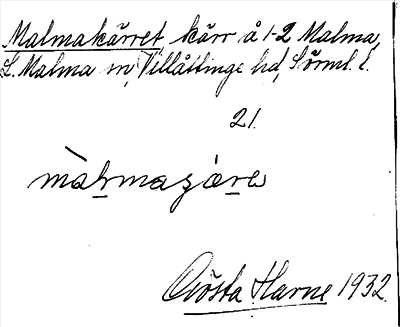 Malmakärret kärr å 1-2 Malma,
L. Malma sn, Villåttinge hd, Sörml. l.
21.
Gösta Harne 1932.